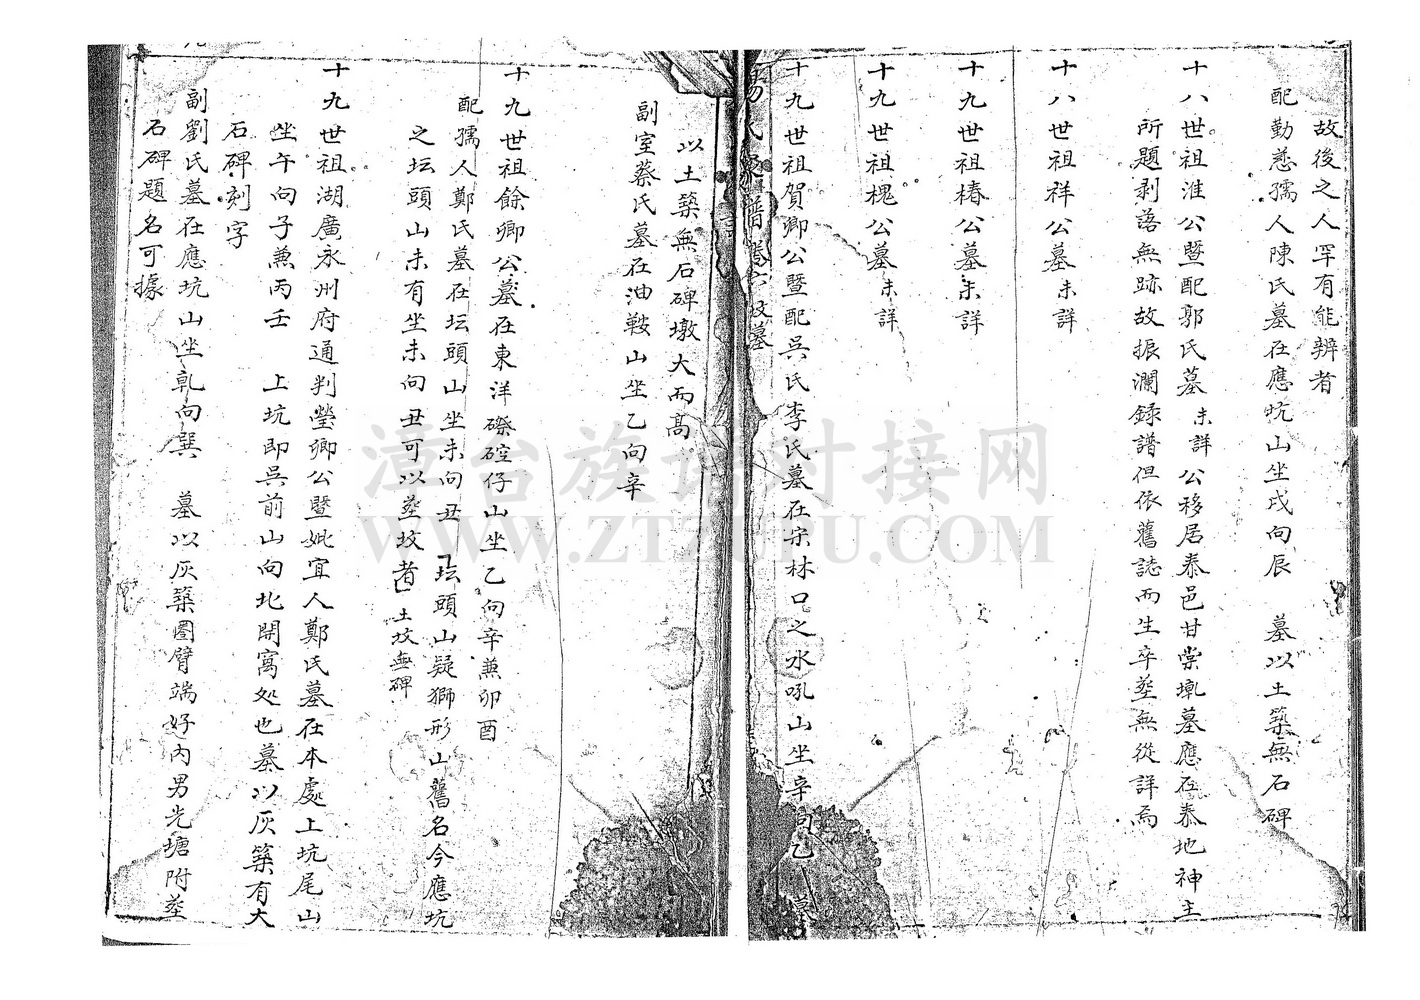 故後之人罕有能辨者
配勤慈孺人陳氏墓在應坑山坐戌向辰　墓以土築無石碑
十八世祖淮公暨配郭氏墓未詳公移居泰邑甘棠墘墓應在泰地神主
所題剥落無跡故振瀾錄譜但依舊誌而生卒塟無從詳焉
十八世祖祥公墓未詳
十九世祖椿公墓未詳
十九世祖槐公墓未詳
十九世祖賀卿公暨配吳氏李氏墓在宋林口之水吼山坐辛向乙 墓
譜卷六 坟墓
以土築無石碑墩大而高
副室蔡氏墓在油鞍山坐乙向辛
十九世祖餘卿公墓在東洋磜硿仔山坐乙向辛兼卯酉
配孺人鄭氏墓在坛頭山坐未向丑　坛頭山疑獅形山舊名今應坑
之坛頭山未有坐未向丑可以塟坟者 土坟無碑
十九世祖湖廣永州府通判瑩卿公暨妣宜人鄭氏墓在本處上坑尾山
坐午向子兼丙壬　上坑即吳前山向北開窩処也墓以灰築有大
石碑刻字
副劉氏墓在應坑山坐乾向巽　墓以灰築圈臂端好内男光塘附塟
石碑題名可據
漳台族谱对接网
WWW.ZTZUPU.COM